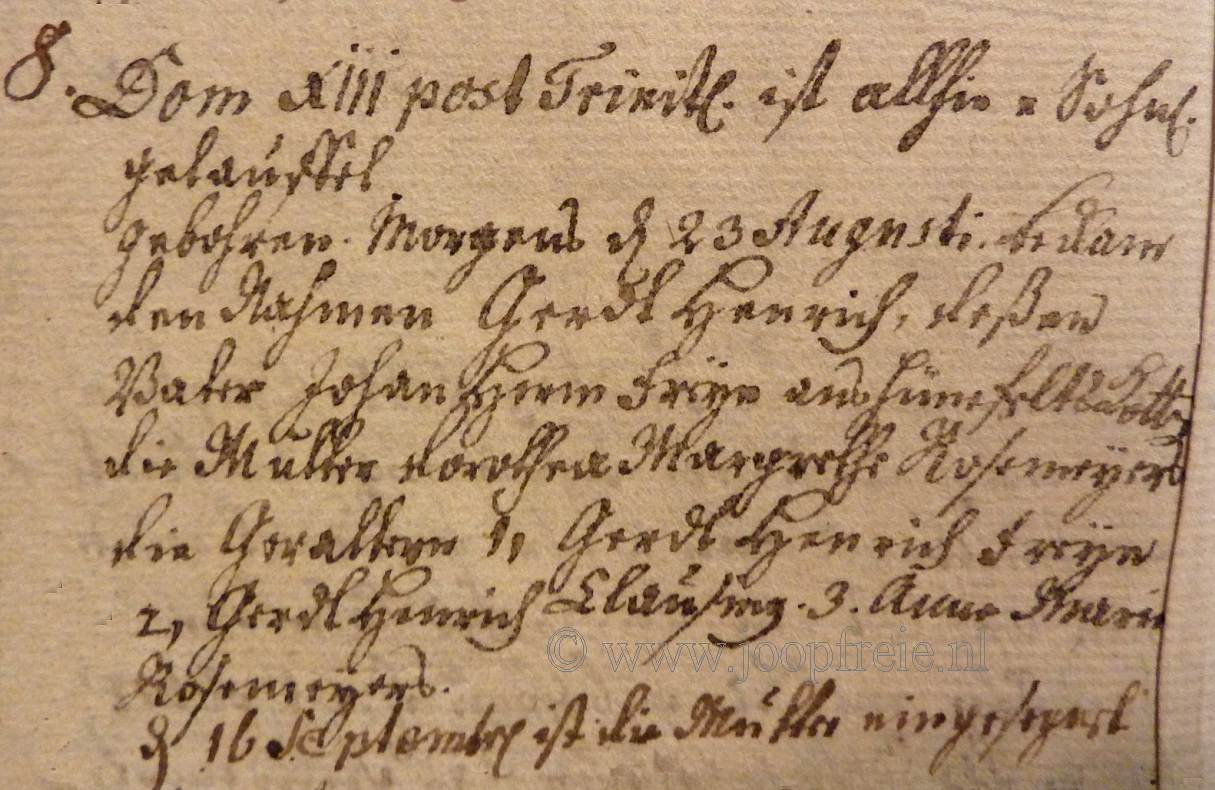 8. Dom XIII post Trinit. ist allhie Sohn
getauffet
gebohren. Morgens d 23 Augusti. bekam
den Nahmen Gerdt Henrich, deßen
Vater Johan Herm Freye aus Hünefelts Kotte
die Mutter dorothea Margrethe Rosemeyers
die Gevattern 1, Gerdt Henrich Freye
2, Gerdt Henrich Clausing. 3. Anna Marie
Rosemeyers.
d 16 Septembr ist die Mutter eingesegnet
© www.joopfreie.nl